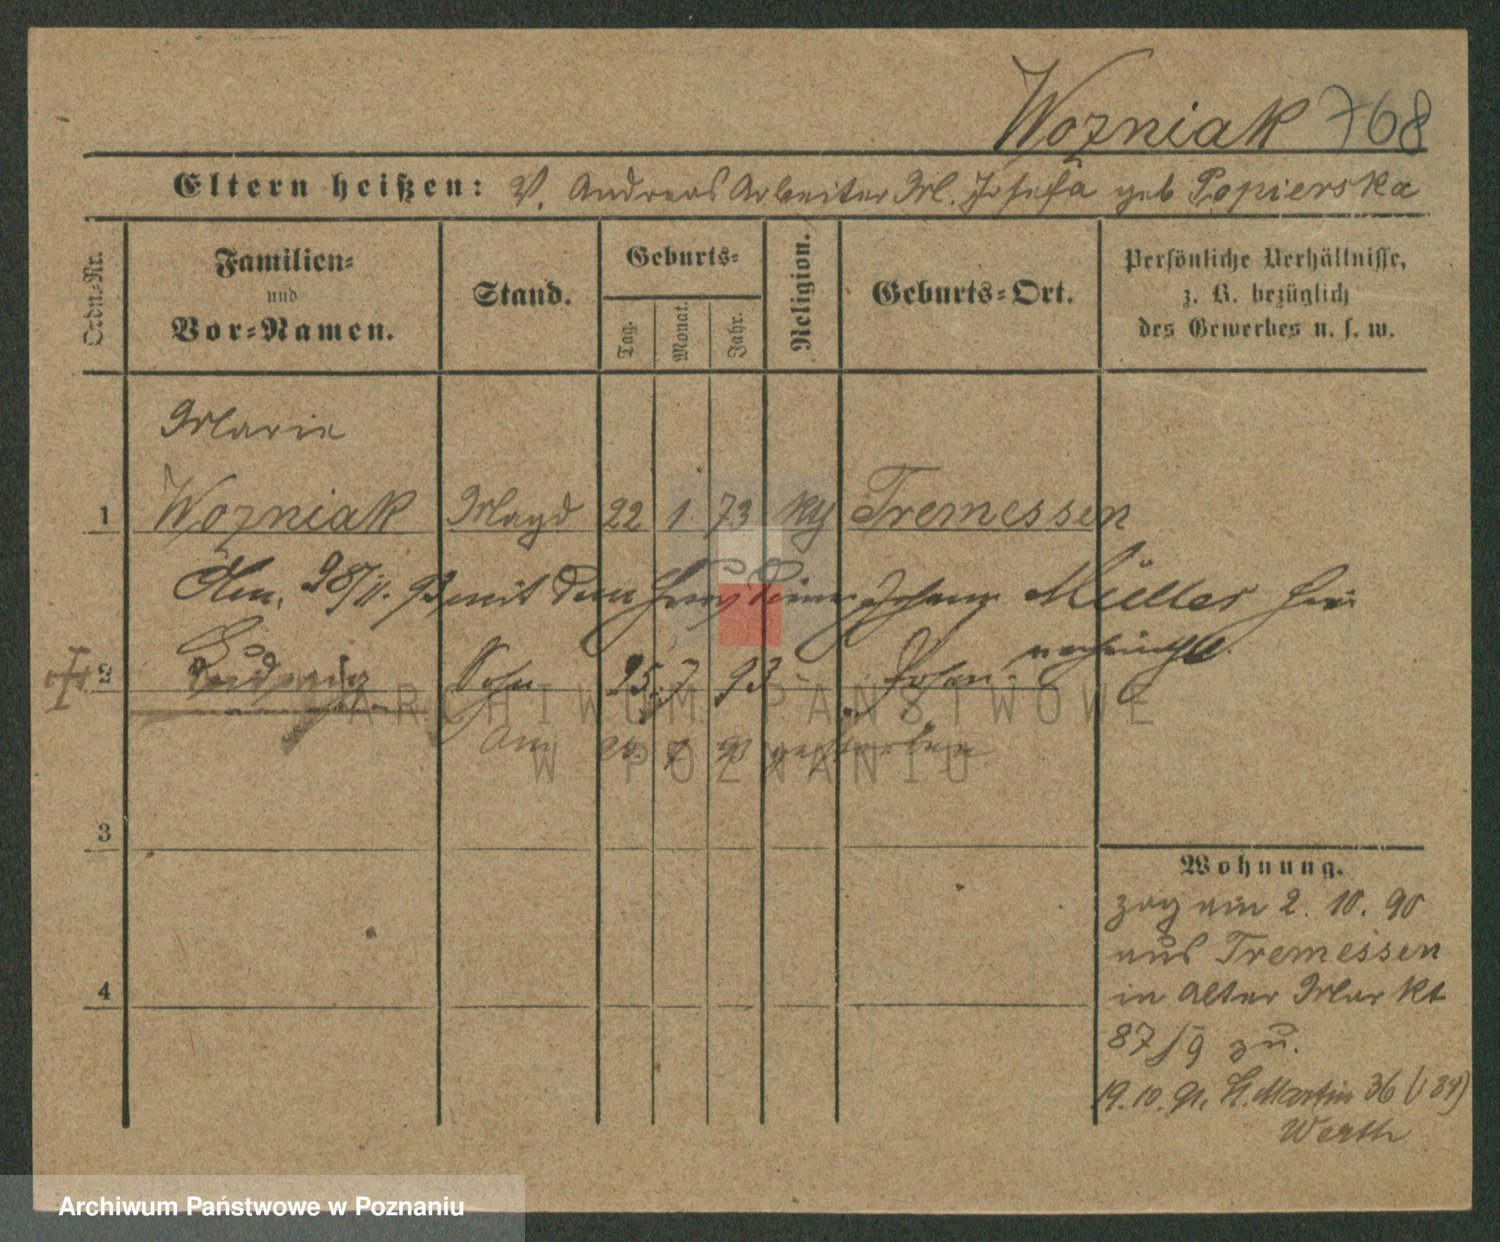 Wozniak 768
Eltern heißen: V. Andreas Arbeiter M. Josefa geb Popierska
Ordn.-Nr.
Familien- und Vor-Namen.
Stand.
Geburts-
Tag.
Monat.
Jahr.
Religion.
Geburts-Ort.
Persönliche Verhältnisse, z. B. bezüglich des Gewerbes u. s. w.
Marie
1 Wozniak Magd 22 1 73 Tremessen
28/11. 93 mit dem Johann Müller
2 Sohn 25. 7 93 Posen
am 7 93 gestorben
3
4
Wohnung.
zog am 2. 10. 90
aus Tremessen
in Alter Markt
87/9 zu.
19. 10. 91. St. Martin 36
Werth
ARCHIWUM PAŃSTWOWE
W POZNANIU
Archiwum Państwowe w Poznaniu